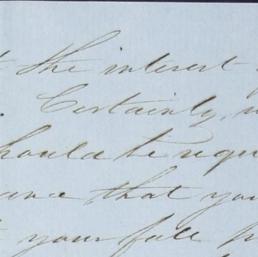 the interest
Certainly,
should be requ
that you
your full